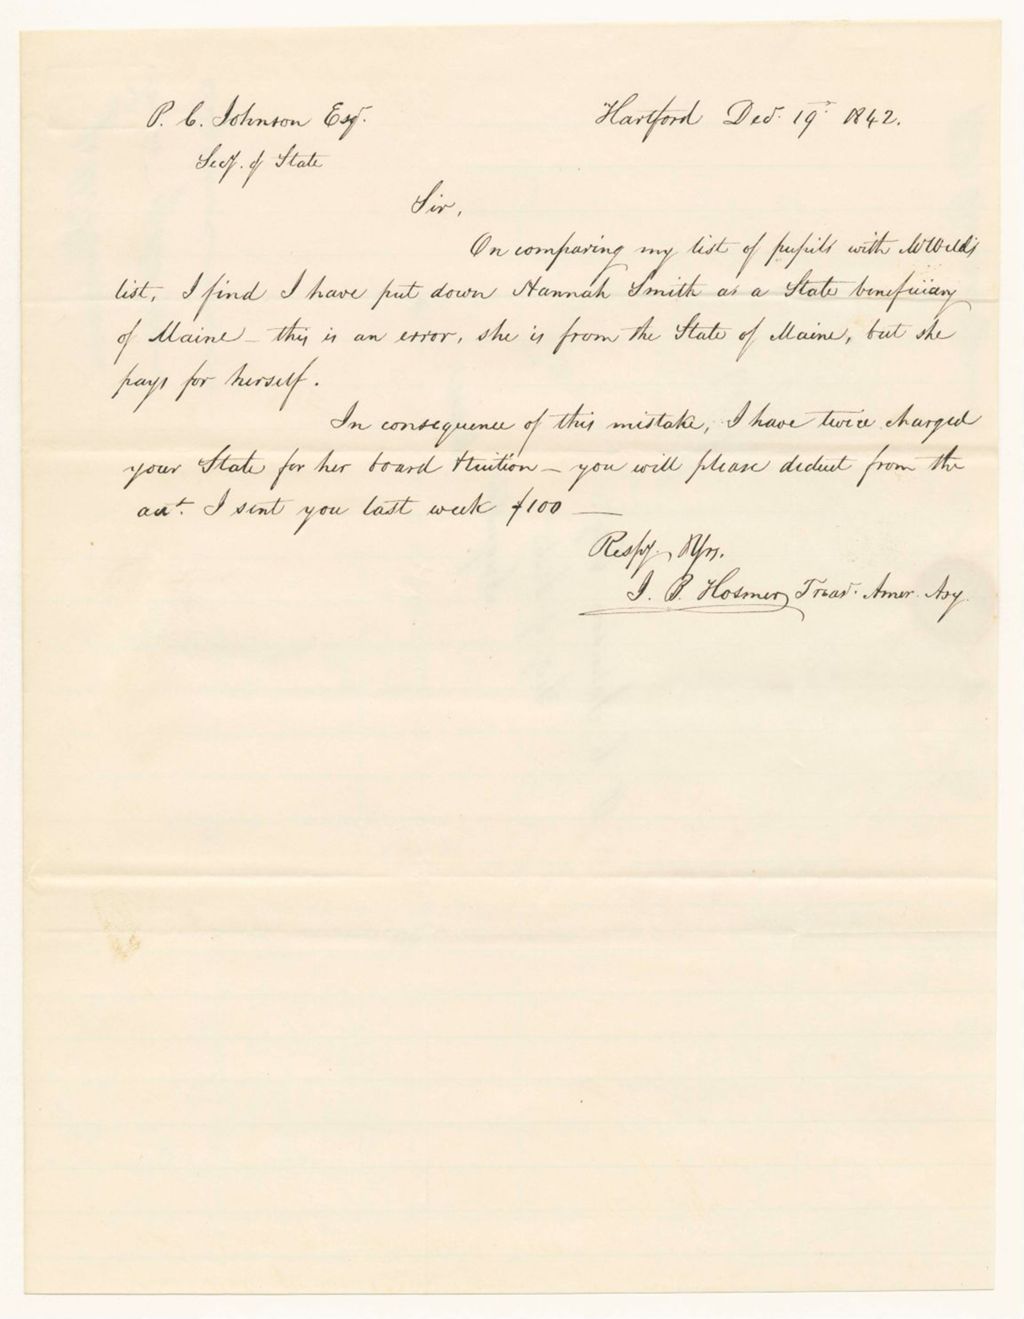 P. C. Johnson Esqr. Hartford Decr. 19th 1842.
Secy. of State
Sir,
On comparing my list of pupils with Mr Weld's
list, I find I have put down Hannah Smith as a State beneficiary
of Maine – this is an error, she is from the State of Maine, but she
pays for herself.
In consequence of this mistake, I have twice charged
your State for her board & tuition – you will please deduct from the
acct. I sent you last week $100 —
Respy. Yrs.
J. B. Hosmer, Treasr. Amer. Asy.